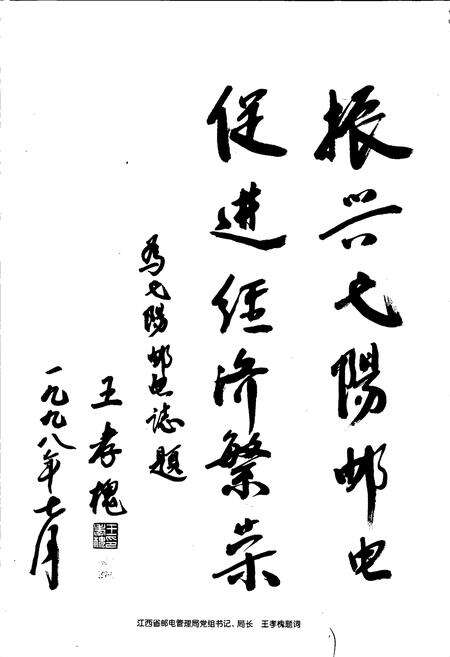 振兴弋陽邮电
促进经济繁荣
为弋陽邮电志题
王孝槐
一九九八年七月
江西省邮电管理局党组书记、局长 王孝槐题词